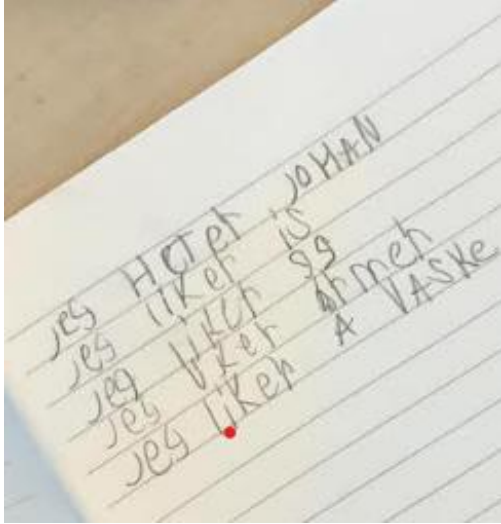 jeg HOTeh JOHAN
jeg liker is
jeg liker gg
jeg liker ormeh
jeg likeh A VASKe